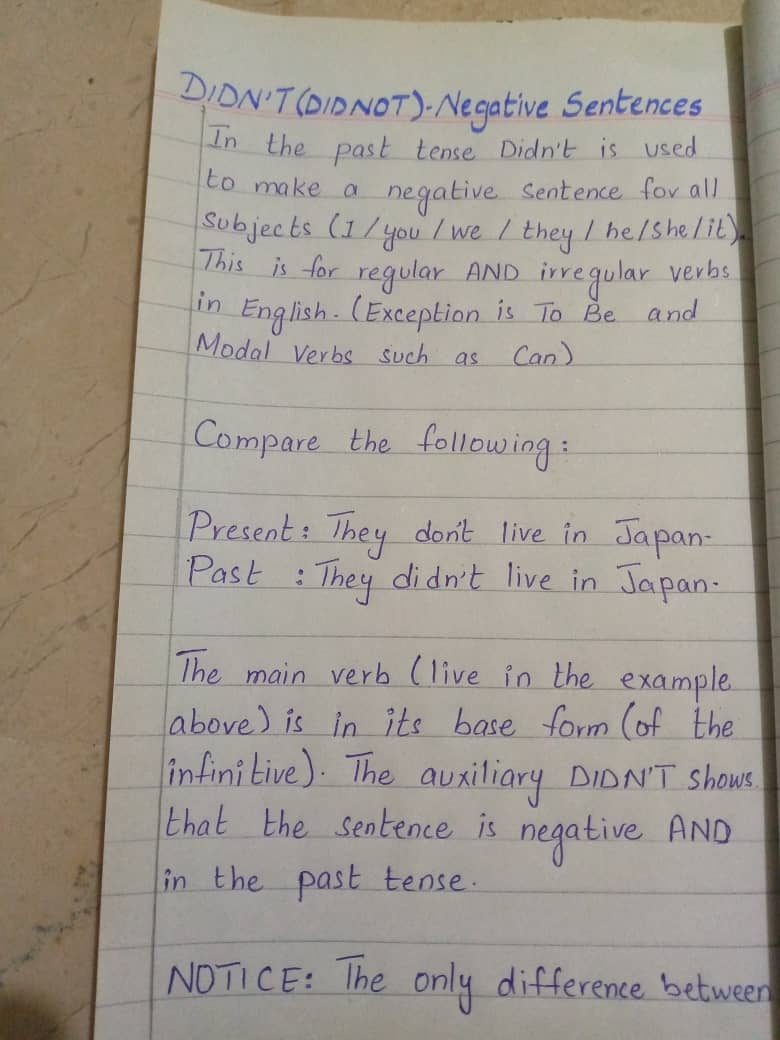 DIDN'T (DID NOT)-Negative Sentences
In the past tense Didn't is used
to make a negative sentence for all
Subjects (I / you / we / they / he / She / it).
This is for regular AND irregular verbs
in English. (Exception is To Be and
Modal Verbs such as Can)
Compare the following :
Present : They don't live in Japan.
Past : They didn't live in Japan.
The main verb (live in the example
above) is in its base form (of the
infinitive). The auxiliary DIDN'T shows
that the sentence is negative AND
in the past tense.
NOTICE: The only difference between